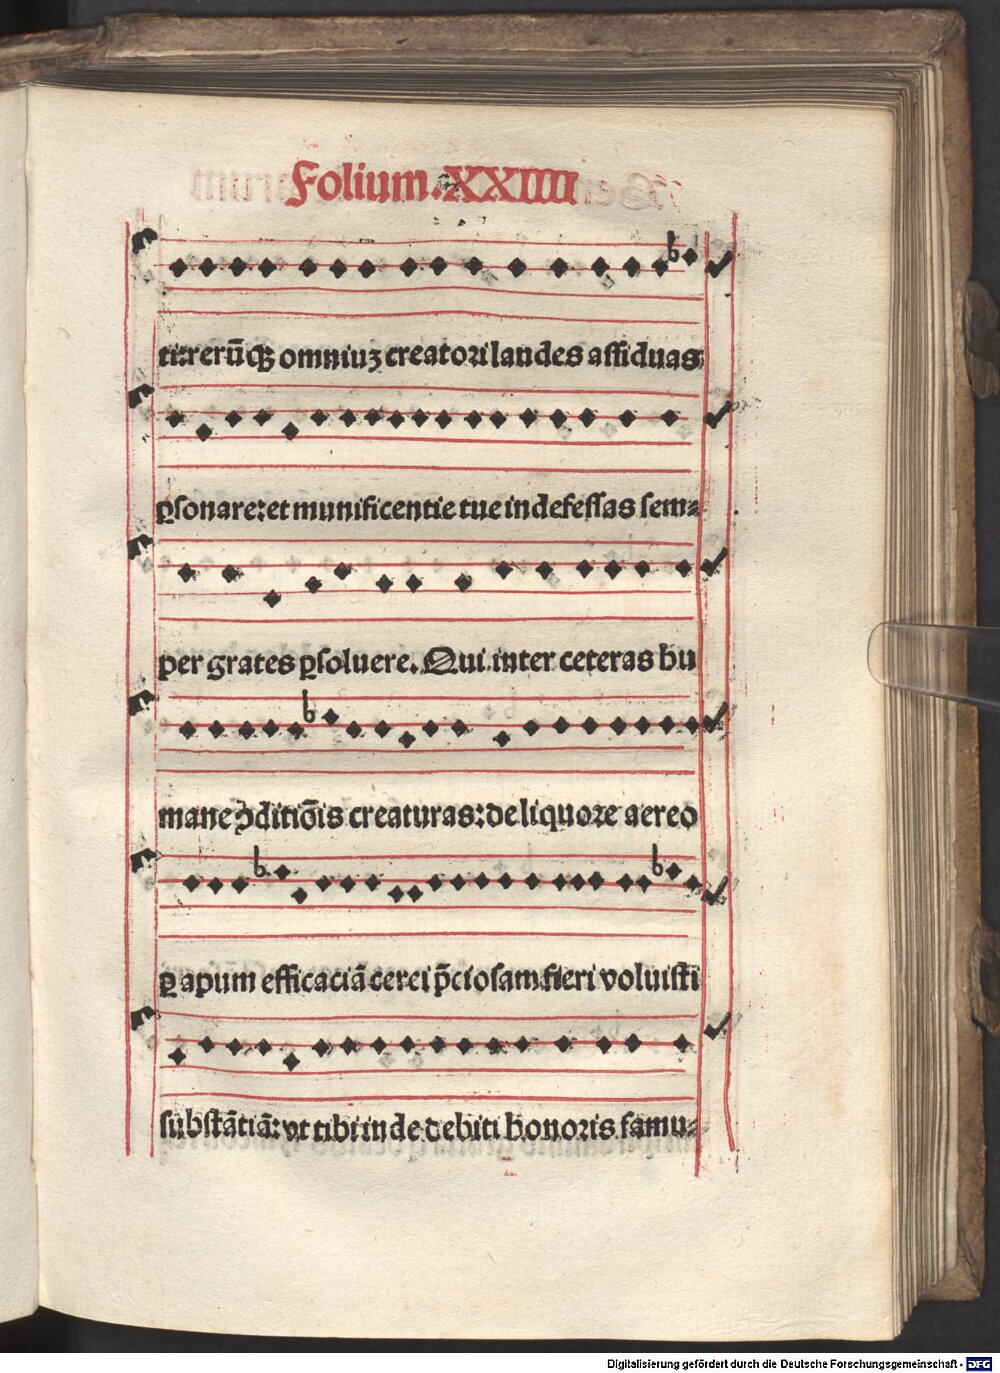 Folium.XXIIII
ti:rerūqꝫ omniuꝫ creatori laudes assiduas
ꝑsonare:et munificentie tue indefessas sem⸗
per grates ꝑsoluere. Qui inter ceteras hu
mane ↄditiōis creaturas:de liquore aereo
ꝑ apum efficaciā cerei p̄ciosam fieri voluisti
substātiā:vt tibi inde debiti honoris famu⸗
Digitalisierung gefördert durch die Deutsche Forschungsgemeinschaft - DFG